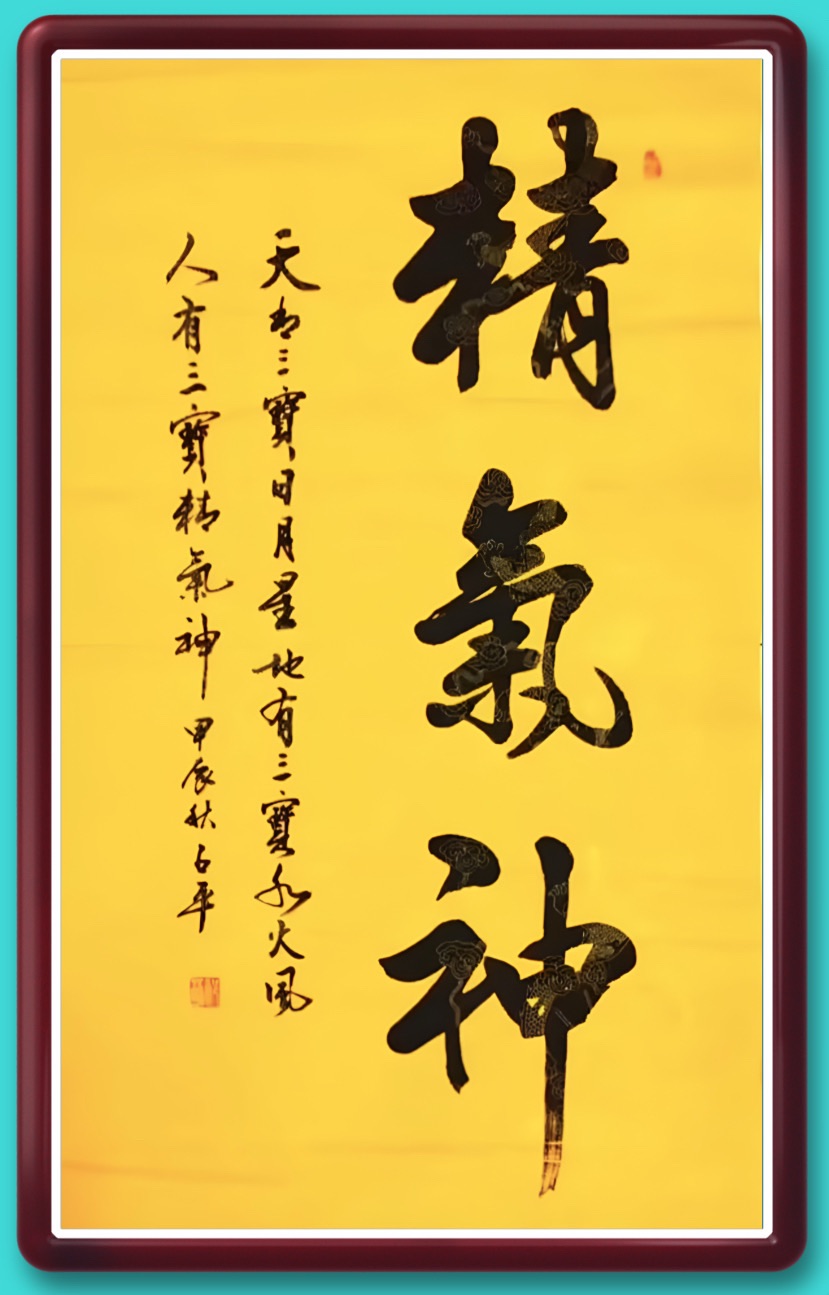 精氣神
天有三寶日月星地有三寶水火風
人有三寶精氣神 甲辰秋 石平